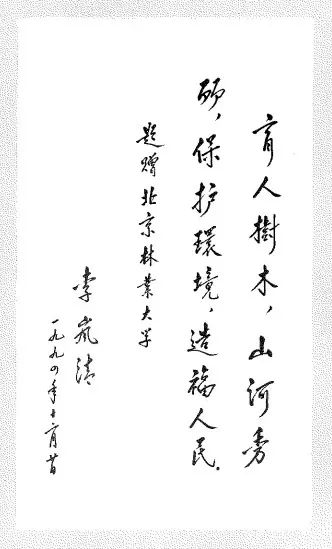 育人樹木，山河秀
丽，保护環境，造福人民.
题赠北京林業大学
李岚清
一九九四年十月